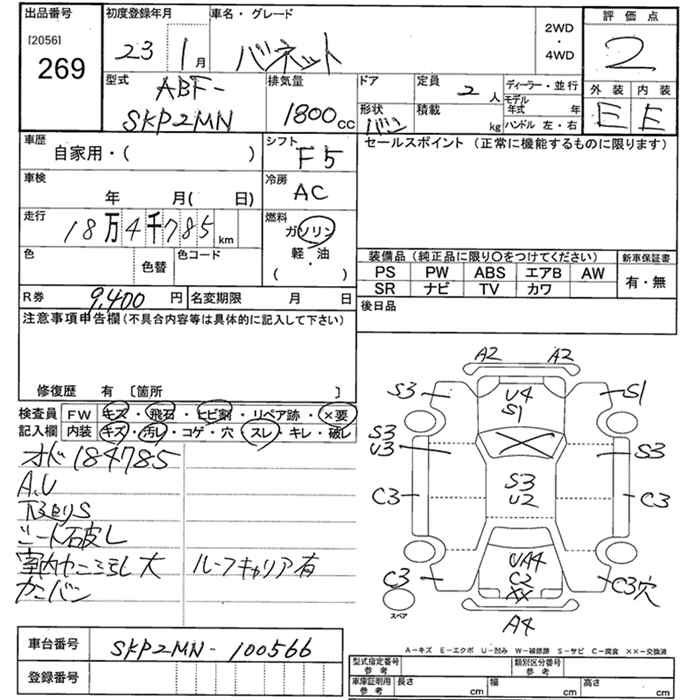 出品番号
[2056]
269
初度登録年月
23 1月
車名・グレード
バネット
2WD
・
4WD
評価点
2
外装 内装
E E
型式
ABF-
SKP2MN
排気量
1800cc
ドア
形状
バン
定員 2人
積載 kg
ディーラー・並行
モデル年式 年
ハンドル 左・右
車歴
自家用・( )
シフト
F5
セールスポイント (正常に機能するものに限ります)
車検
年 月( 日)
冷房
AC
走行
18万4千785km
燃料
ガソリン
軽・油
( ・ )
色
色替
色コード
装備品(純正品に限り〇をつけてください)
PS PW ABS エアB AW
SR ナビ TV カワ
新車保証書
有・無
R券 9,400円
名変期限 月 日
後日品
注意事項申告欄(不具合内容等は具体的に記入して下さい)
修復歴 有 〔箇所 〕
検査員
記入欄
FW キズ・飛石・ヒビ割・リペア跡・×要
内装 キズ・汚レ・コゲ・穴・スレ・キレ・破レ
オド184785
A,U
下廻りS
シート破レ
大 ルーフキャリア有
A2 A2
S3 U4 S1
S1
S3
U3
S3
C3 S3 C3
U2
UA4
C3 C2 C3穴
××
スペア
A4
A-キズ E-エクボ U-凹み W-補修跡 S-サビ C-腐食 ××-交換済
車台番号 SKP2MN-100566
登録番号
型式指定番号
参考
類別区分番号
参考
車庫証明用
参考
長さ cm 幅 cm 高さ cm